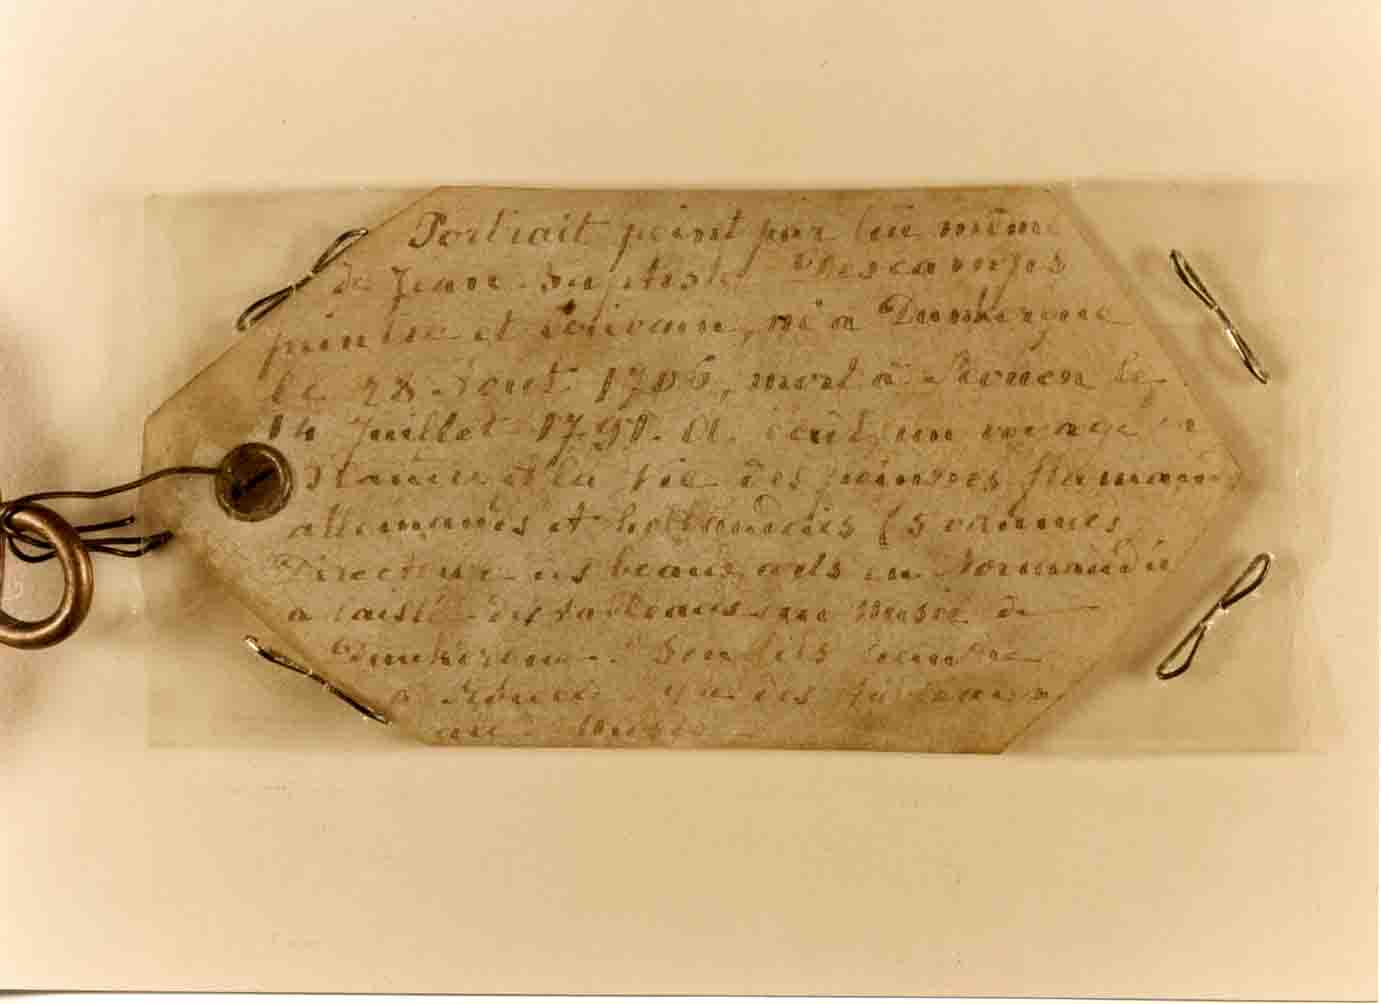 Portrait peint par lui même
de Jean-Baptiste Descamps
peintre et écrivain, né a Dunkerque
le 28 Aout 1706, mort à Rouen le
14 Juillet 1791. A écrit, un voyage en
et la vie des peintres flamands
allemands et hollandais (5 volumes
Directeur des beaux arts en Normandie
a laissé des tableaux au Musée de
Dunkerque. Son fils peintre
a Rouen. des tableaux
au Musée